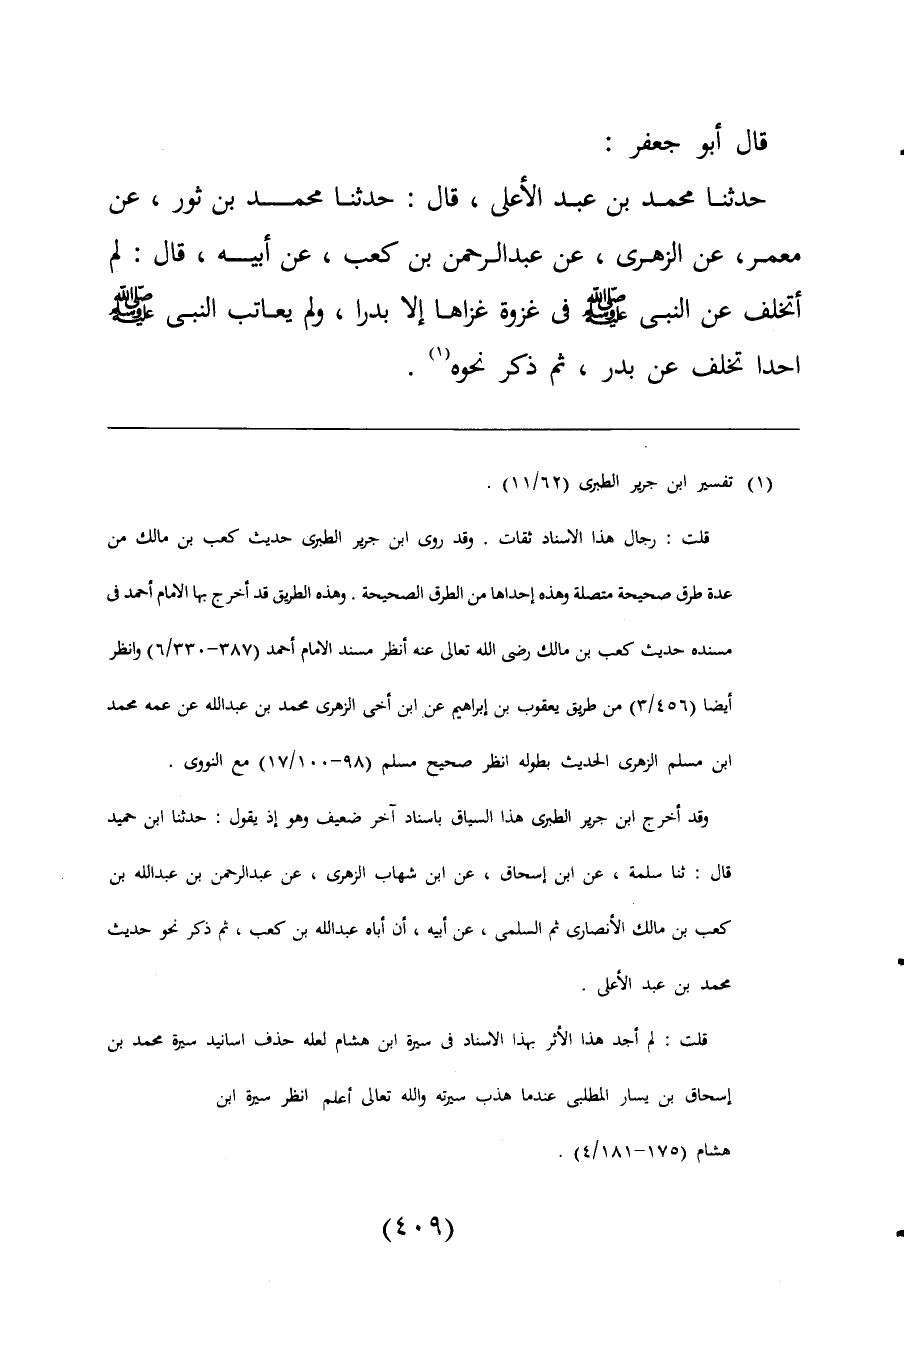 قال أبو جعفر :
حدثنا محمد بن عبد الأعلى ، قال : حدثنا محمد بن ثور ، عن
معمر، عن الزهرى ، عن عبدالرحمن بن كعب ، عن أبيه ، قال : لم
أتخلف عن النبى ﷺ فى غزوة غزاها إلا بدرا ، ولم يعاتب النبى ﷺ
احدا تخلف عن بدر ، ثم ذكر نحوه(١) .
(١) تفسير ابن جرير الطبرى (١١/٦٢) .
قلت : رجال هذا الاسناد ثقات . وقد روى ابن جرير الطبرى حديث كعب بن مالك من
عدة طرق صحيحة متصلة وهذه إحداها من الطرق الصحيحة . وهذه الطريق قد أخرج بها الامام أحمد فى
مسنده حديث كعب بن مالك رضى الله تعالى عنه أنظر مسند الامام أحمد (٣٨٧-٦/٣٣٠) وانظر
أيضا (٣/٤٥٦) من طريق يعقوب بن إبراهيم عن ابن أخى الزهرى محمد بن عبدالله عن عمه محمد
ابن مسلم الزهرى الحديث بطوله انظر صحيح مسلم (٩٨-١٧/١٠٠) مع النووى .
وقد أخرج ابن جرير الطبرى هذا السياق باسناد آخر ضعيف وهو إذ يقول : حدثنا ابن حميد
قال : ثنا سلمة ، عن ابن إسحاق ، عن ابن شهاب الزهرى ، عن عبدالرحمن بن عبدالله بن
كعب بن مالك الأنصارى ثم السلمى ، عن أبيه ، أن أباه عبدالله بن كعب ، ثم ذكر نحو حديث
محمد بن عبد الأعلى .
قلت : لم أجد هذا الأثر بهذا الاسناد فى سيرة ابن هشام لعله حذف اسانيد سيرة محمد بن
إسحاق بن يسار المطلبى عندما هذب سيرته والله تعالى أعلم انظر سيرة ابن
هشام (١٧٥-٤/١٨١) .
(٤٠٩)